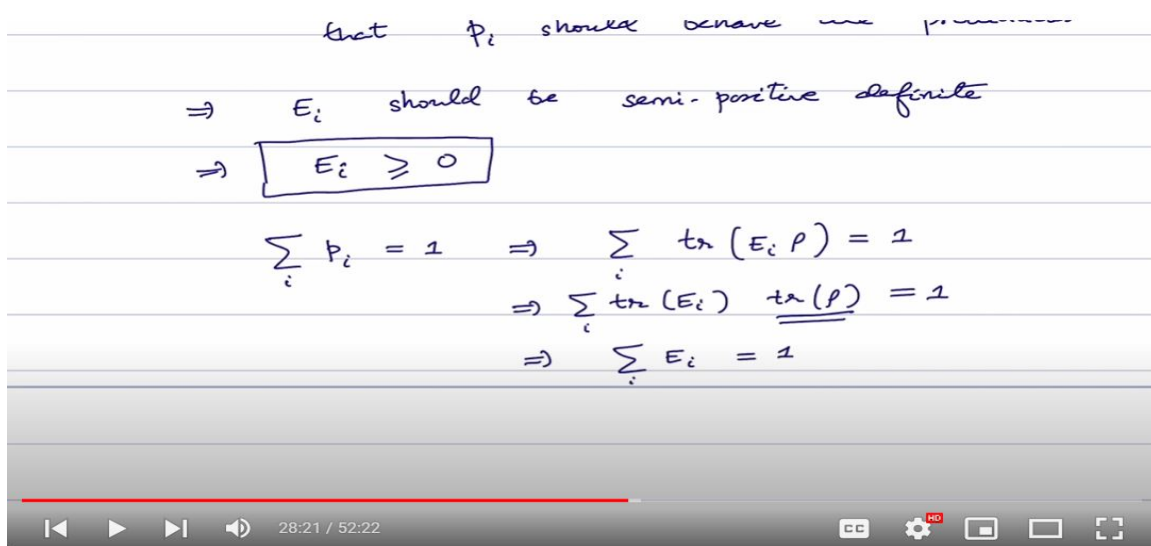 that p_i should behave
⇒ E_i should be semi-positive definite
⇒ E_i ⩾ 0
∑_i p_i = 1 ⇒ ∑_i tr (E_i ρ) = 1
⇒ ∑_i tr (E_i) tr (ρ) = 1
⇒ ∑_i E_i = 1
28:21 / 52:22
CC HD